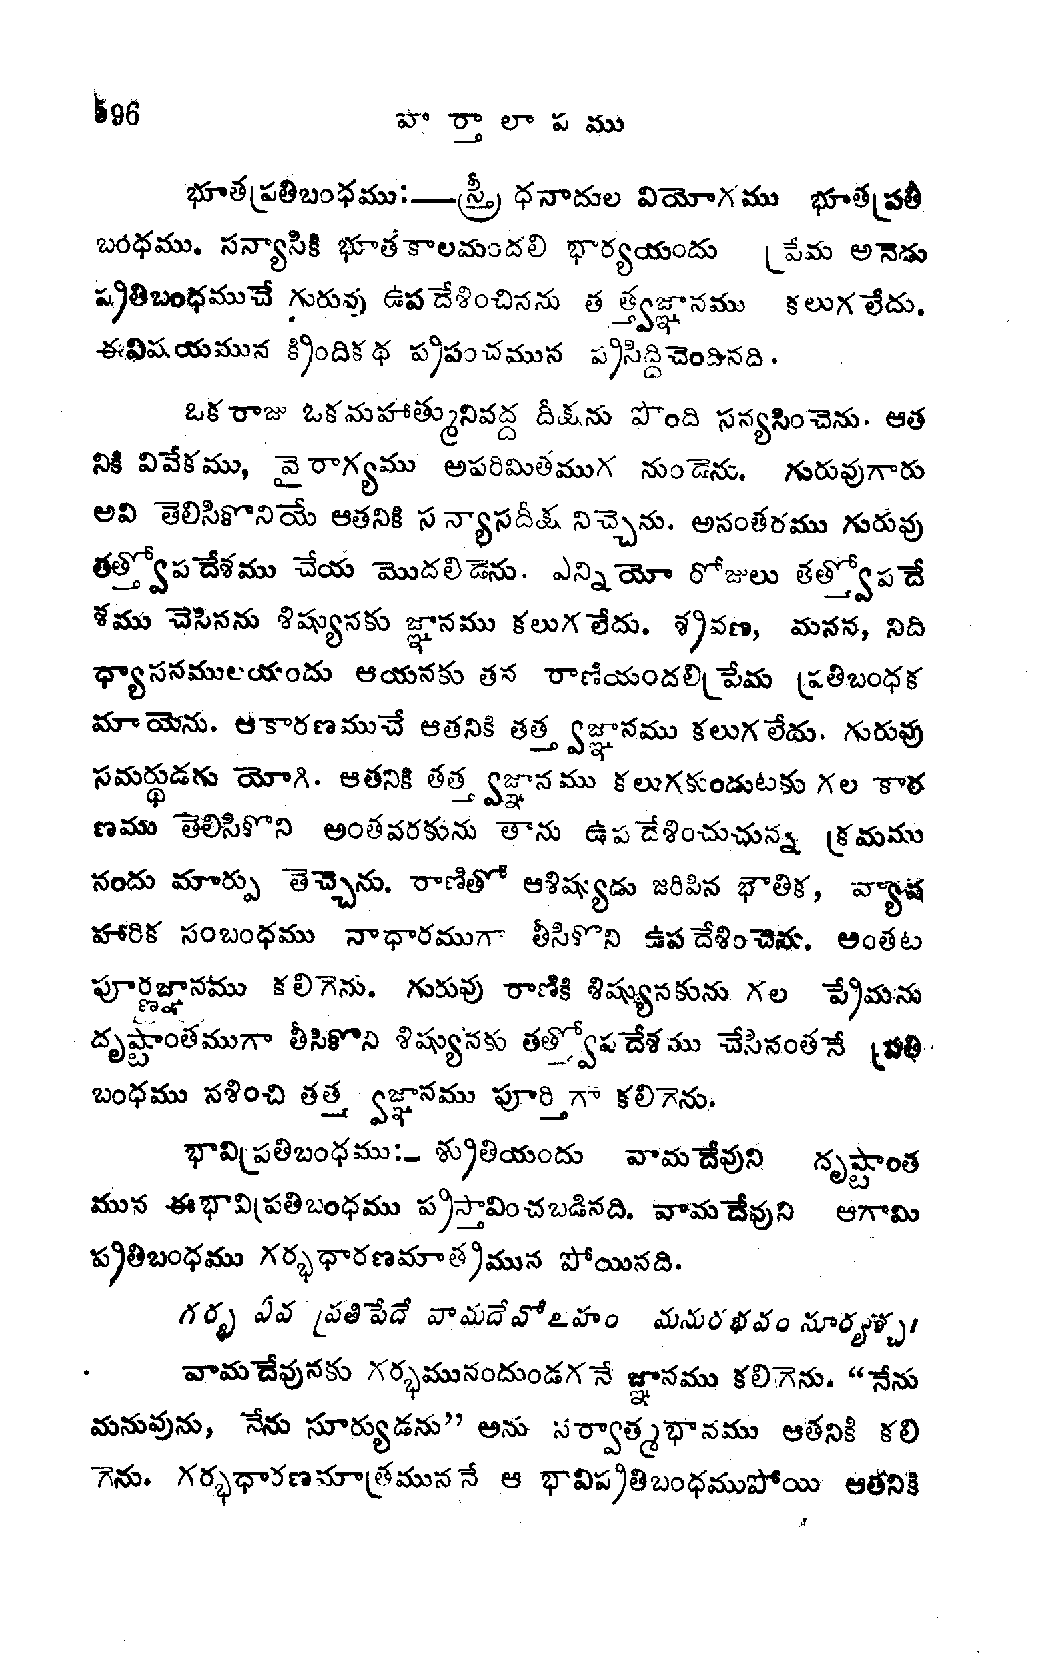 596
వార్తాలాపము
భూతప్రతిబంధము:—స్త్రీ ధనాదుల వియోగము భూతప్రతి
బంధము. సన్యాసికి భూతకాలమందలి భార్యయందు ప్రేమ అనెడు
ప్రతిబంధముచే గురువు ఉపదేశించినను తత్త్వజ్ఞానము కలుగలేదు.
ఈవిషయమున క్రిందికథ ప్రపంచమున ప్రసిద్ధిచెందినది.
ఒకరాజు ఒకమహాత్మునివద్ద దీక్షను పొంది సన్యసించెను. ఆత
నికి వివేకము, వైరాగ్యము అపరిమితముగ నుండెను. గురువుగారు
అవి తెలిసికొనియే ఆతనికి సన్యాసదీక్ష నిచ్చెను. అనంతరము గురువు
తత్త్వోపదేశము చేయ మొదలిడెను. ఎన్నియో రోజులు తత్త్వోపదే
శము చెసినను శిష్యునకు జ్ఞానము కలుగలేదు. శ్రవణ, మనన, నిది
ధ్యాసనములయందు ఆయనకు తన రాణియందలి ప్రేమ ప్రతిబంధక
మాయెను. ఆకారణముచే ఆతనికి తత్త్వజ్ఞానము కలుగలేదు. గురువు
సమర్థుడగు యోగి. ఆతనికి తత్త్వజ్ఞానము కలుగకుండుటకు గల కార
ణము తెలిసికొని అంతవరకును తాను ఉపదేశించుచున్న క్రమము
నందు మార్పు తెచ్చెను. రాణితో ఆశిష్యుడు జరిపిన భౌతిక, వ్యావ
హారిక సంబంధము నాధారముగా తీసికొని ఉపదేశించెను. అంతట
పూర్ణజ్ఞానము కలిగెను. గురువు రాణికి శిష్యునకును గల ప్రేమను
దృష్టాంతముగా తీసికొని శిష్యునకు తత్త్వోపదేశము చేసినంతనే ప్రతి
బంధము నశించి తత్త్వజ్ఞానము పూర్తిగా కలిగెను.
భావిప్రతిబంధము:– శ్రుతియందు వామదేవుని దృష్టాంత
మున ఈభావిప్రతిబంధము ప్రస్తావించబడినది. వామదేవుని ఆగామి
ప్రతిబంధము గర్భధారణమాత్రమున పోయినది.
గర్భ ఏవ ప్రతిపేదే వామదేవోఽహం మనురభవం సూర్యశ్చ।
వామదేవునకు గర్భమునందుండగనే జ్ఞానము కలిగెను. “నేను
మనువును, నేను సూర్యుడను” అను సర్వాత్మభానము ఆతనికి కలి
గెను. గర్భధారణమాత్రముననే ఆ భావిప్రతిబంధముపోయి ఆతనికి